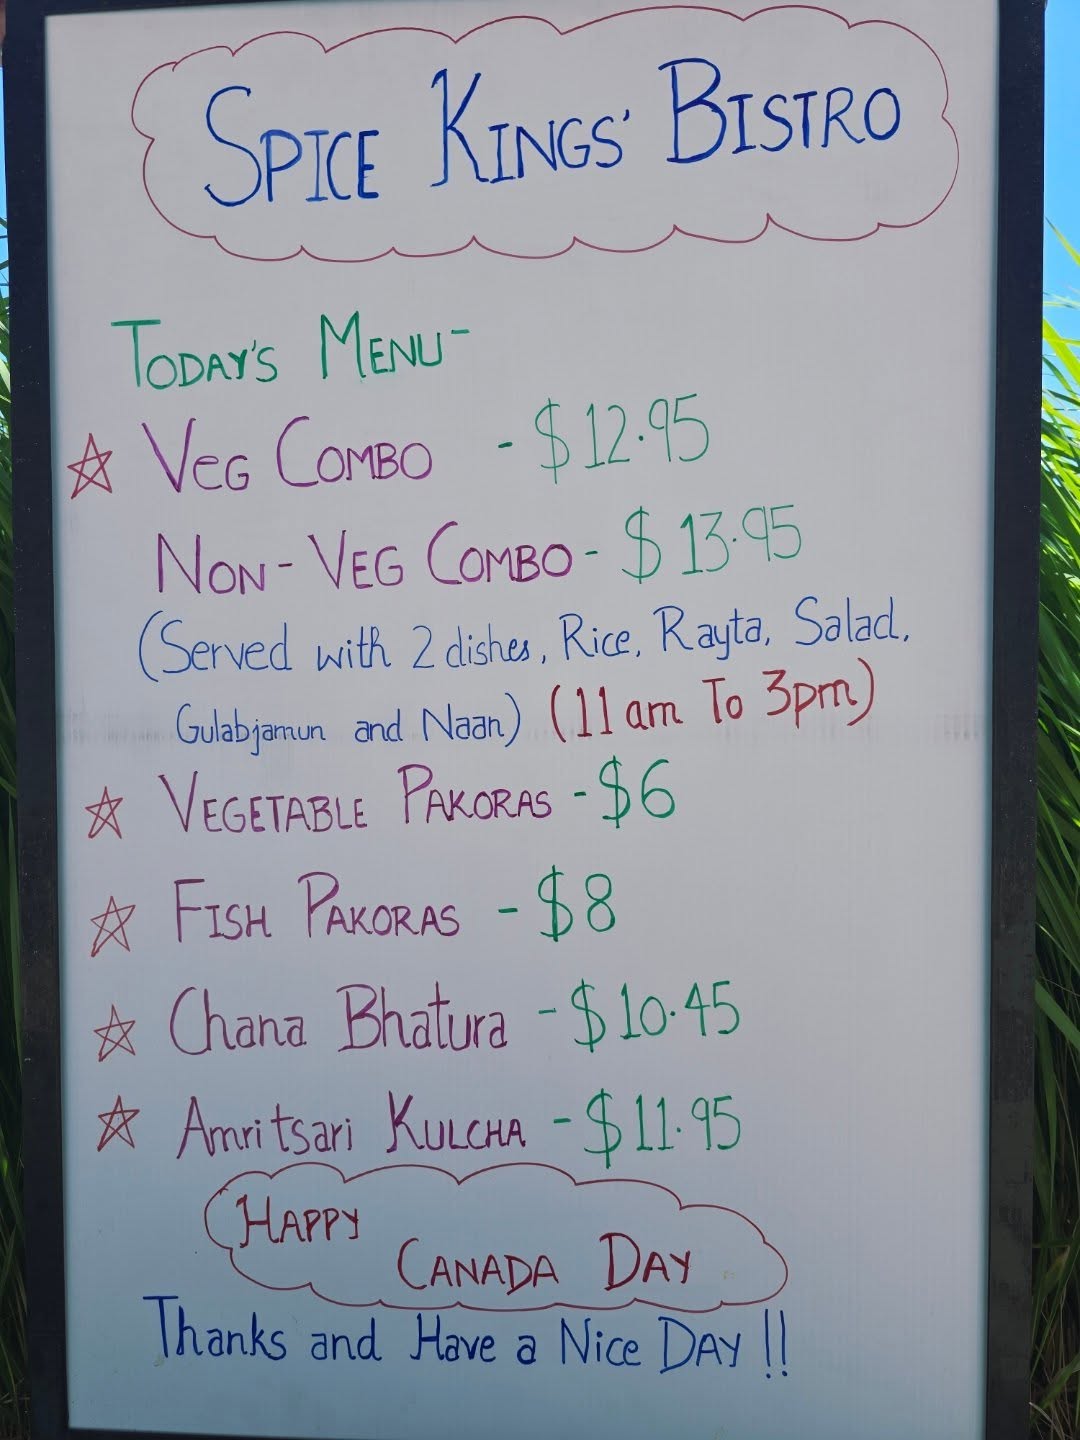 SPICE KINGS' BISTRO
TODAY'S MENU-
VEG COMBO - $12.95
NON-VEG COMBO- $13.95
(Served with 2 dishes, Rice, Rayta, Salad,
Gulabjamun and Naan) (11am To 3pm)
VEGETABLE PAKORAS -$6
FISH PAKORAS -$8
Chana Bhatura -$10.45
Amritsari KULCHA -$11.95
HAPPY
CANADA DAY
Thanks and Have a Nice DAY !!